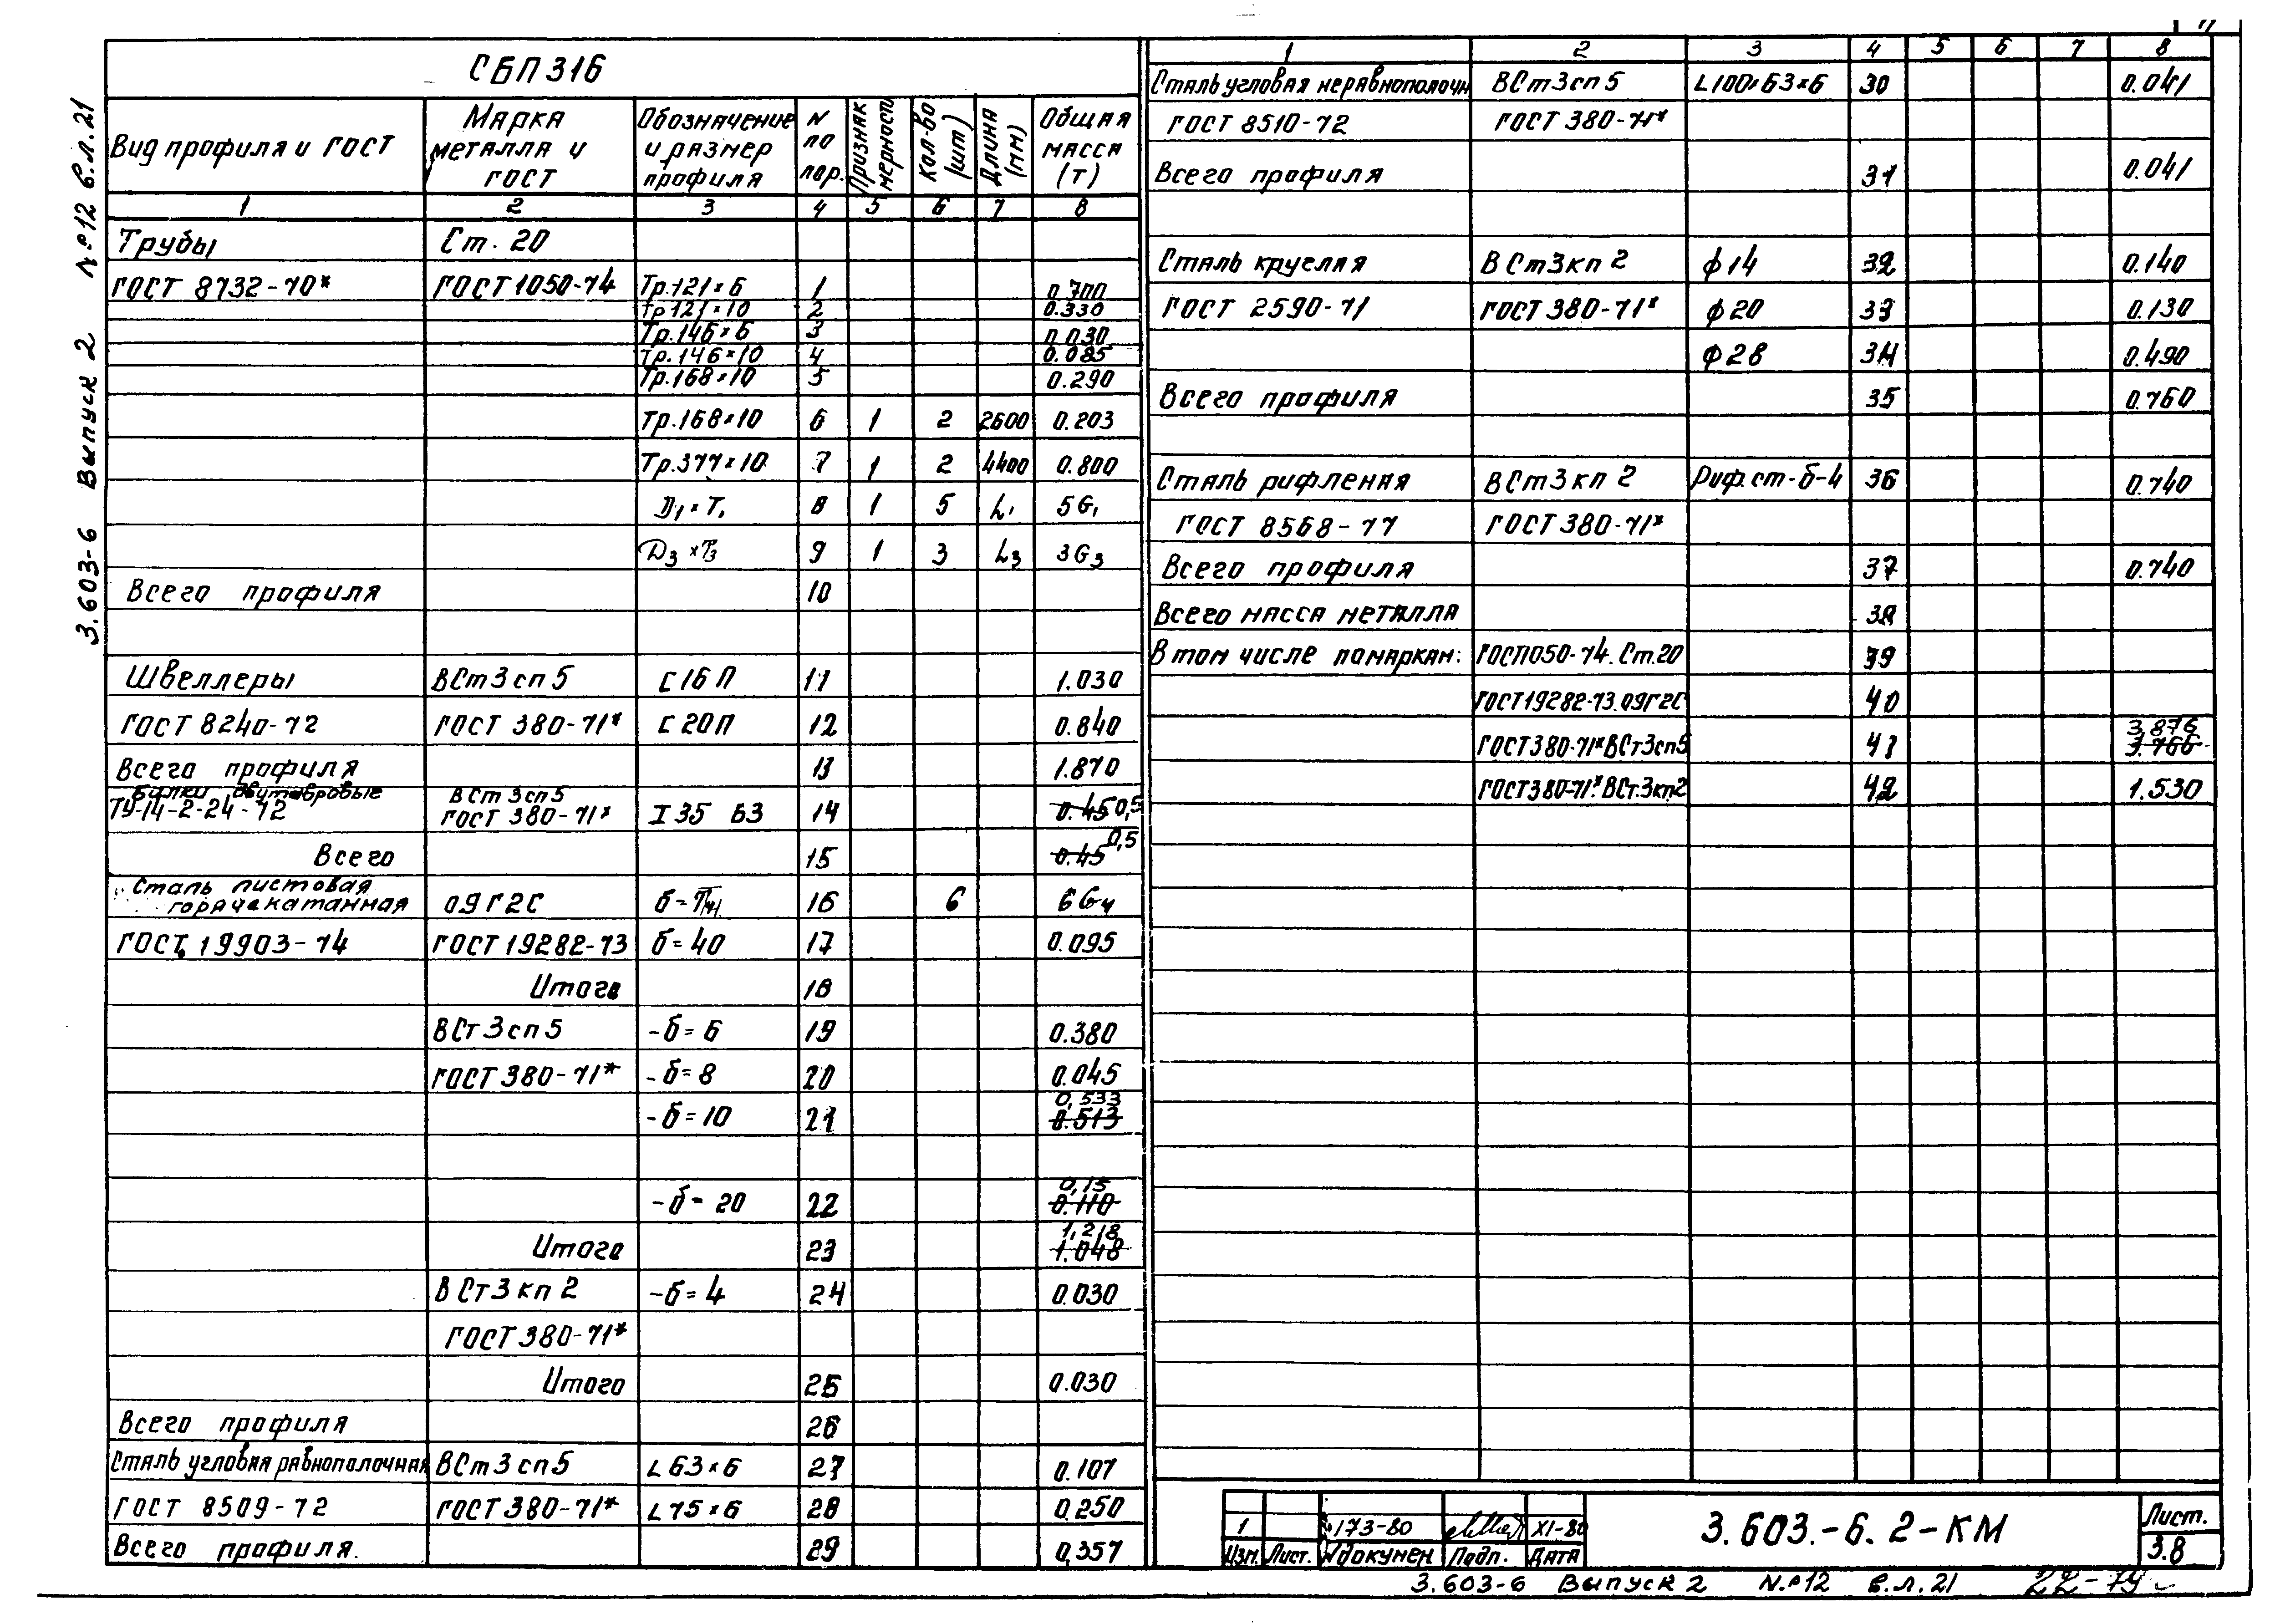 СБП 316
Вид профиля и ГОСТ | Марка металла и ГОСТ | Обозначение и размер профиля | N по пор. | Признак мерности | Кол-во (шт) | Длина (мм) | Общая масса (т)
1 2 3 4 5 6 7 8
Трубы Ст. 20
ГОСТ 8732-70* ГОСТ 1050-74 Тр.121×6 1 0.700
Тр 121×10 2 0.330
Тр.146×6 3 0.030
Тр.146×10 4 0.085
Тр.168×10 5 0.290
Тр.168×10 6 1 2 2600 0.203
Тр.377×10 7 1 2 4400 0.800
D₁×T₁ 8 1 5 L₁ 5G₁
D₃×T₃ 9 1 3 L₃ 3G₃
Всего профиля 10
Швеллеры ВСт3сп5 [16П 11 1.030
ГОСТ 8240-72 ГОСТ 380-71* [20П 12 0.840
Всего профиля 13 1.870
Балки двутавровые ВСт3сп5
ТУ-14-2-24-72 ГОСТ 380-71* I 35 Б3 14 0.45 0,5
Всего 15 0.45 0,5
Сталь листовая
горячекатанная 09Г2С б= 16 6 6G₄
ГОСТ 19903-74 ГОСТ 19282-73 б=40 17 0.095
Итого 18
ВСт3сп5 -б=6 19 0.380
ГОСТ 380-71* -б=8 20 0.045
-б=10 21 0,533 0.513
-б=20 22 0,15 0.110
Итого 23 1,218 1.048
ВСт3кп2 -б=4 24 0.030
ГОСТ 380-71*
Итого 25 0.030
Всего профиля 26
Сталь угловая равнополочная ВСт3сп5 L 63×6 27 0.107
ГОСТ 8509-72 ГОСТ 380-71* L 75×6 28 0.250
Всего профиля. 29 0,357
1 2 3 4 5 6 7 8
Сталь угловая неравнополочн ВСт3сп5 L100×63×6 30 0.041
ГОСТ 8510-72 ГОСТ 380-71*
Всего профиля 31 0.041
Сталь круглая ВСт3кп2 ф14 32 0.140
ГОСТ 2590-71 ГОСТ 380-71* ф20 33 0.130
ф28 34 0.490
Всего профиля 35 0.760
Сталь рифленая ВСт3кп2 Риф.ст-б-4 36 0.740
ГОСТ 8568-77 ГОСТ 380-71*
Всего профиля 37 0.740
Всего масса металла 38
В том числе помаркам: ГОСТ1050-74.Ст.20 39
ГОСТ19282-73.09Г2С 40
ГОСТ380-71*ВСт3сп5 41 3,876 3.766
ГОСТ380-71*.ВСт.3кп2 42 1.530
1 173-80 XI-80
Изм. Лист. N докумен Подп. Дата
3.603.-6.2-КМ
Лист.
3.8
3.603-6 Выпуск 2 N.º12 в.л.21
3.603-6 Выпуск 2 N.º12 в.л.21